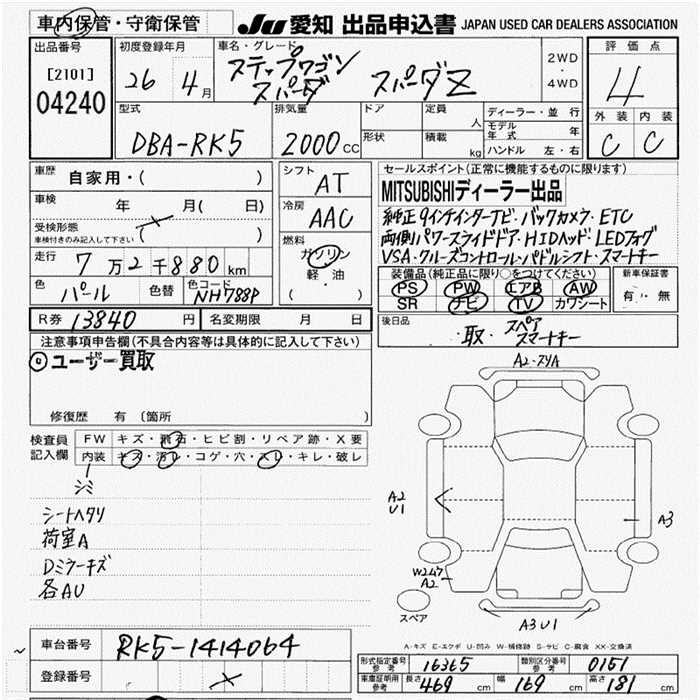 車内保管・守衛保管
JU 愛知 出品申込書 JAPAN USED CAR DEALERS ASSOCIATION
出品番号
[2101]
04240
初度登録年月
26 4月
車名・グレード
ステップワゴン
スパーダ スパーダZ
2WD
・
4WD
評価点
4
外装 内装
C C
型式
DBA-RK5
排気量
2000cc
ドア
形状
定員
人
積載
kg
ディーラー・並行
モデル年式 年
ハンドル 左・右
車歴
自家用・( )
車検 年 月( 日)
受検形態
車検付きのみ記入して下さい ( )
走行 7万2千880km
色 パール 色替 色コード NH788P
R券 13840円 名変期限 月 日
シフト
AT
冷房
AAC
燃料
ガソリン
軽・油
( )
セールスポイント(正常に機能するものに限ります)
MITSUBISHIディーラー出品
純正9インチインターナビ・バックカメラ・ETC
両側パワースライドドア・HIDヘッド・LEDフォグ
VSA・クルーズコントロール・パドルシフト・スマートキー
装備品(純正品に限り○をつけてください)
PS PW エアB AW
SR ナビ TV カワシート
新車保証書
有・無
後日品
取・スペア
スマートキー
注意事項申告欄(不具合内容等は具体的に記入して下さい)
ユーザー買取
修復歴 有(箇所 )
検査員
記入欄
FW キズ・飛石・ヒビ割・リペア跡・X要
内装 キズ・汚レ・コゲ・穴・スレ・キレ・破レ
シミ
シートヘタリ
荷室A
Dミラーキズ
各AU
A2・スリA
A2
U1
A3
W2
A2
スペア
A3U1
A-キズ E-エクボ U-凹み W-補修跡 S-サビ C-腐食 XX-交換済
車台番号 RK5-1414064
登録番号
形式指定番号
参考 16365
類別区分番号
参考 0151
車庫証明用
参考 長さ 469cm 幅 169cm 高さ 181cm